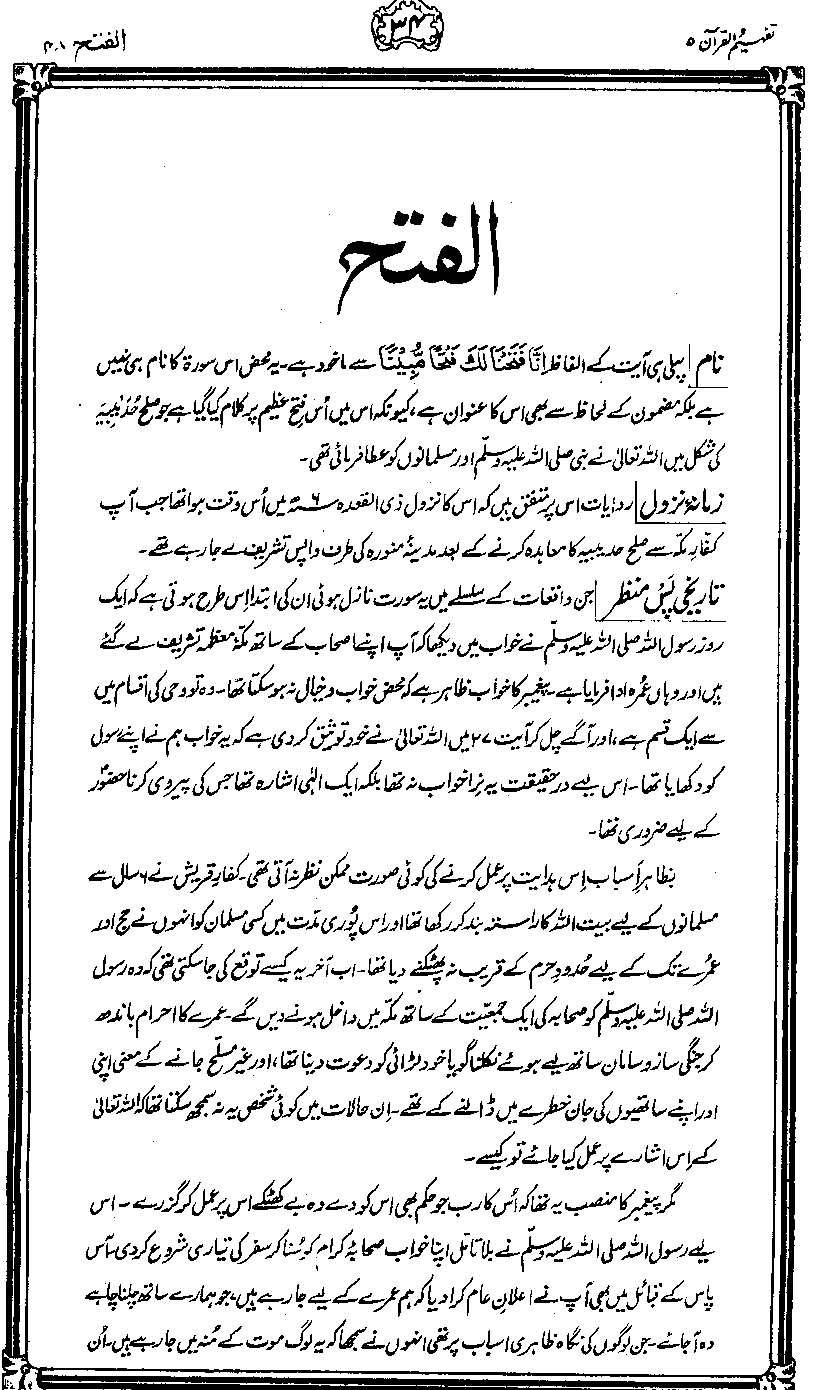 تفہیم القرآن ۵
۳۴
الفتح ۴۸
الفتح
نام پہلی ہی آیت کے الفاظ اِنَّا فَتَحْنَا لَكَ فَتْحًا مُّبِيْنًا سے ماخوذ ہے۔ یہ محض اس سورۃ کا نام ہی نہیں
ہے بلکہ مضمون کے لحاظ سے بھی اس کا عنوان ہے، کیونکہ اس میں اُس فتحِ عظیم پر کلام کیا گیا ہے جو صلح حُدَیبیہ
کی شکل میں اللہ تعالیٰ نے نبی صلی اللہ علیہ وسلّم اور مسلمانوں کو عطا فرمائی تھی۔
زمانۂ نزول روایات اس پر متفق ہیں کہ اس کا نزول ذی القعدہ ۶ھ میں اُس وقت ہوا تھا جب آپ
کفّارِ مکّہ سے صلح حدیبیہ کا معاہدہ کرنے کے بعد مدینۂ منورہ کی طرف واپس تشریف لے جا رہے تھے۔
تاریخی پس منظر جن واقعات کے سلسلے میں یہ سورت نازل ہوئی ان کی ابتدا اِس طرح ہوتی ہے کہ ایک
روز رسول اللہ صلی اللہ علیہ وسلّم نے خواب میں دیکھا کہ آپ اپنے اصحاب کے ساتھ مکّۂ معظمہ تشریف لے گئے
ہیں اور وہاں عُمرہ ادا فرمایا ہے۔ پیغمبر کا خواب ظاہر ہے کہ محض خواب و خیال نہ ہو سکتا تھا۔ وہ تو وحی کی اقسام میں
سے ایک قسم ہے، اور آگے چل کر آیت ۲۷ میں اللہ تعالیٰ نے خود توثیق کر دی ہے کہ یہ خواب ہم نے اپنے رسول
کو دکھایا تھا۔ اس لیے درحقیقت یہ نِرا خواب نہ تھا بلکہ ایک الٰہی اشارہ تھا جس کی پیروی کرنا حضورؐ
کے لیے ضروری تھا۔
بظاہر اَسباب اِس ہدایت پر عمل کرنے کی کوئی صورت ممکن نظر نہ آتی تھی۔ کفارِ قریش نے ۶ سال سے
مسلمانوں کے لیے بیت اللہ کا راستہ بند کر رکھا تھا اور اس پُوری مدّت میں کسی مسلمان کو انہوں نے حج اور
عمرے تک کے لیے حُدودِ حرم کے قریب نہ پھٹکنے دیا تھا۔ اب آخر یہ کیسے توقع کی جا سکتی تھی کہ وہ رسول
اللہ صلی اللہ علیہ وسلّم کو صحابہ کی ایک جمعیّت کے ساتھ مکّہ میں داخل ہونے دیں گے۔ عمرے کا احرام باندھ
کر جنگی ساز و سامان ساتھ لیے ہوئے نکلنا گویا خود لڑائی کو دعوت دینا تھا، اور غیر مسلّح جانے کے معنی اپنی
اور اپنے ساتھیوں کی جان خطرے میں ڈالنے کے تھے۔ اِن حالات میں کوئی شخص یہ نہ سمجھ سکتا تھا کہ اللہ تعالیٰ
کے اس اشارے پر عمل کیا جائے تو کیسے۔
مگر پیغمبر کا منصب یہ تھا کہ اُس کا رب جو حکم بھی اس کو دے وہ بے کھٹکے اس پر عمل کر گزرے۔ اس
لیے رسول اللہ صلی اللہ علیہ وسلّم نے بلا تامّل اپنا خواب صحابۂ کرام کو سُنا کر سفر کی تیاری شروع کر دی۔ آس
پاس کے قبائل میں بھی آپ نے اعلانِ عام کرا دیا کہ ہم عمرے کے لیے جا رہے ہیں، جو ہمارے ساتھ چلنا چاہے
وہ آ جائے۔ جن لوگوں کی نگاہ ظاہری اسباب پر تھی انہوں نے سمجھا کہ یہ لوگ موت کے مُنہ میں جا رہے ہیں۔ اُن